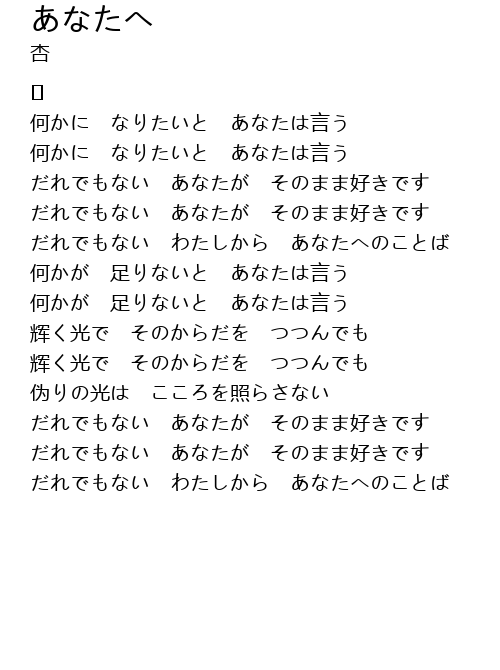 あなたへ
杏
何かに　なりたいと　あなたは言う
何かに　なりたいと　あなたは言う
だれでもない　あなたが　そのまま好きです
だれでもない　あなたが　そのまま好きです
だれでもない　わたしから　あなたへのことば
何かが　足りないと　あなたは言う
何かが　足りないと　あなたは言う
輝く光で　そのからだを　つつんでも
輝く光で　そのからだを　つつんでも
偽りの光は　こころを照らさない
だれでもない　あなたが　そのまま好きです
だれでもない　あなたが　そのまま好きです
だれでもない　わたしから　あなたへのことば